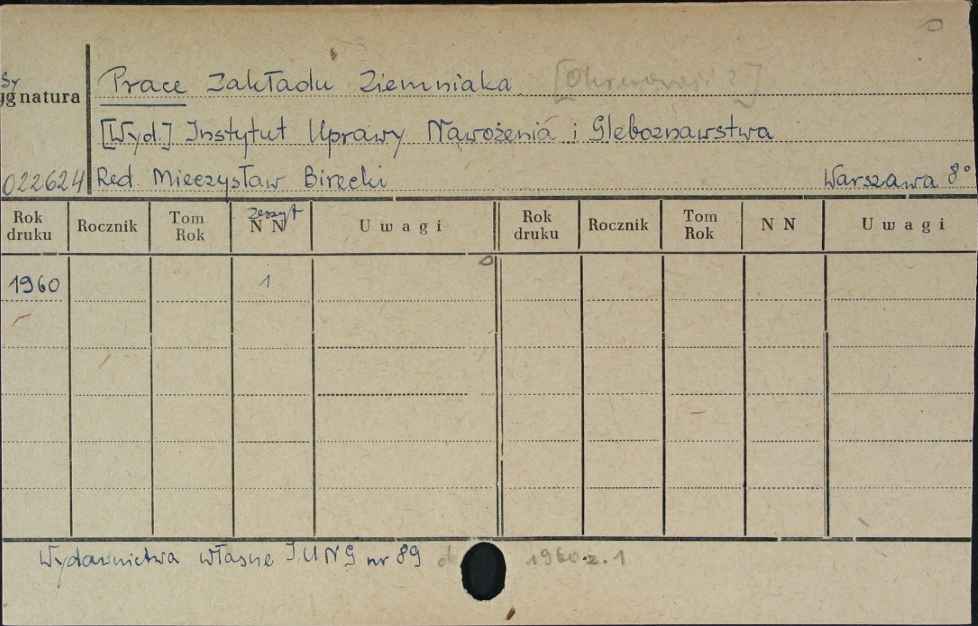 Prace Zakładu Ziemniaka
Sygnatura
[Wyd.] Instytut Uprawy Nawożenia i Gleboznawstwa
022624 Red Mieczysław Birecki Warszawa 8°
Rok druku Rocznik Tom Rok Zeszyt N N Uwagi Rok druku Rocznik Tom Rok N N Uwagi
1960 1
Wydawnictwa własne I.U.N.G nr 89 1960 z. 1